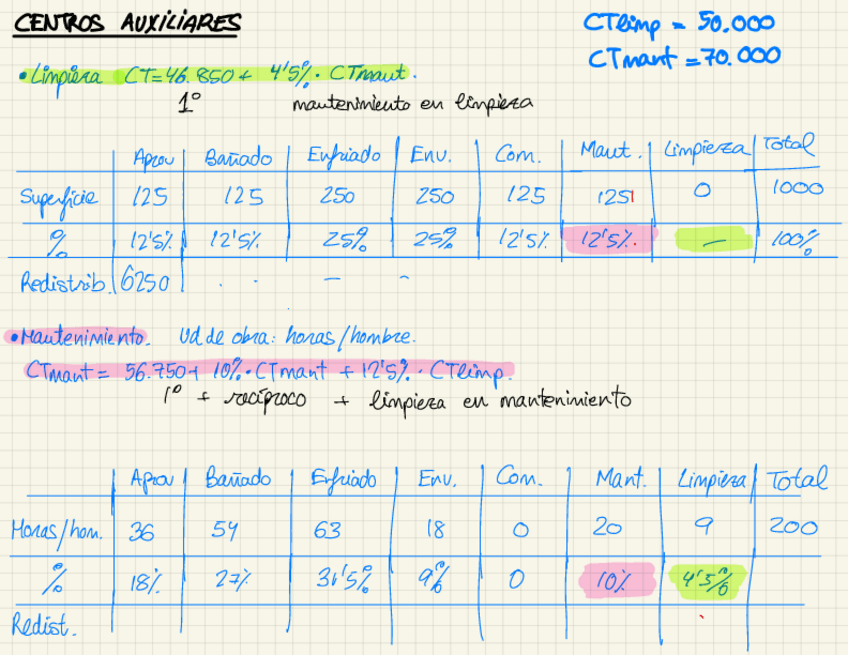 CENTROS AUXILIARES
CTlimp = 50.000
CTmant = 70.000
• Limpieza CT=46.850+ 4'5%· CTmant.
1º mantenimiento en limpieza
Aprov Bañado Enfriado Env. Com. Mant. Limpieza Total
Superficie 125 125 250 250 125 125 0 1000
% 12'5% 12'5% 25% 25% 12'5% 12'5%. — 100%
Redistrib. 6250 . . — -
• Mantenimiento. Ud de obra: horas/hombre.
CTmant = 56.750+ 10%·CTmant + 12'5%·CTlimp.
1º + recíproco + limpieza en mantenimiento
Aprov Bañado Enfriado Env. Com. Mant. Limpieza Total
Horas/hom. 36 54 63 18 0 20 9 200
% 18% 27% 31'5% 9% 0 10% 4'5%
Redist.